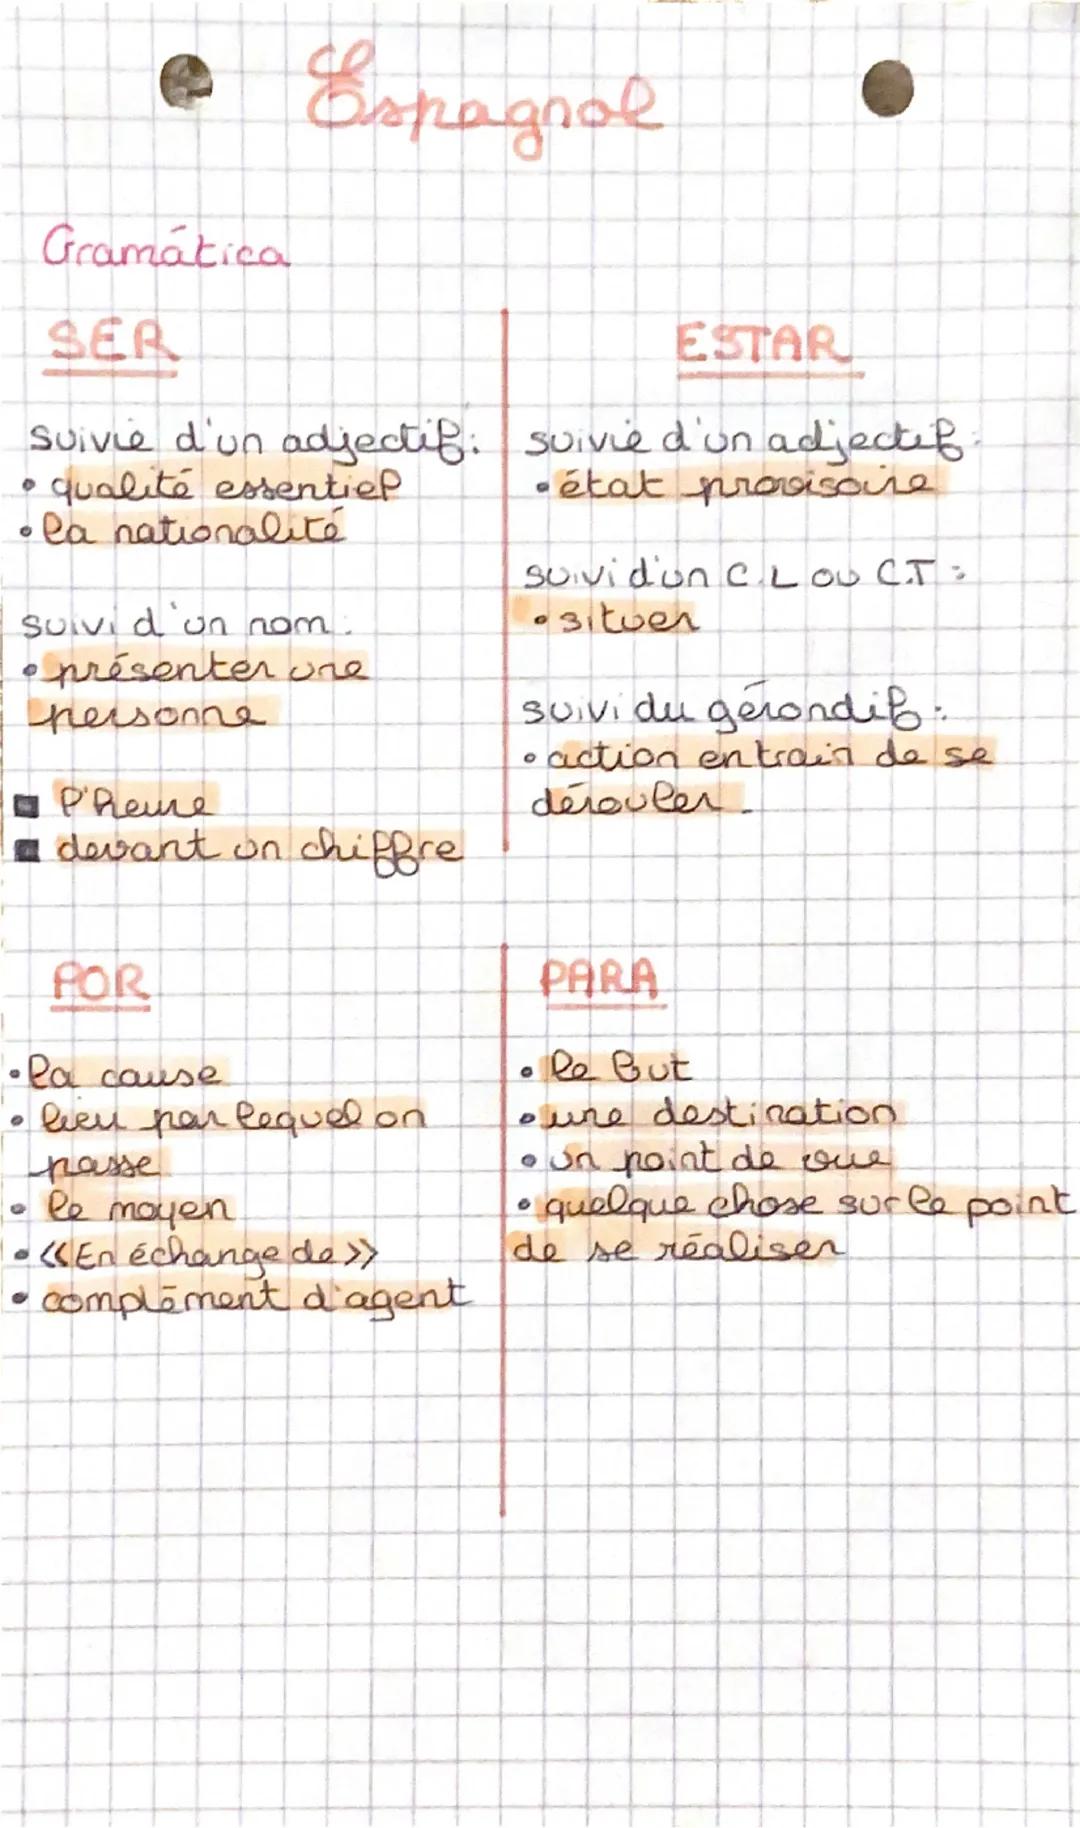 Espagnol
Gramática
SER
suivie d'un adjectif:
• qualité essentiel
• la nationalité
suivi d'un nom:
• présenter une
personne
▪ l'heure
▪ devant un chiffre
ESTAR
suivie d'un adjectif:
• état provisoire
suivi d'un C.L ou C.T:
• situer
suivi du gérondif:
• action en train de se
dérouler.
POR
• la cause
• lieu par lequel on
passe
• le moyen
• «En échange de»
• complément d'agent
PARA
• le but
• une destination
• un point de vue
• quelque chose sur le point
de se réaliser